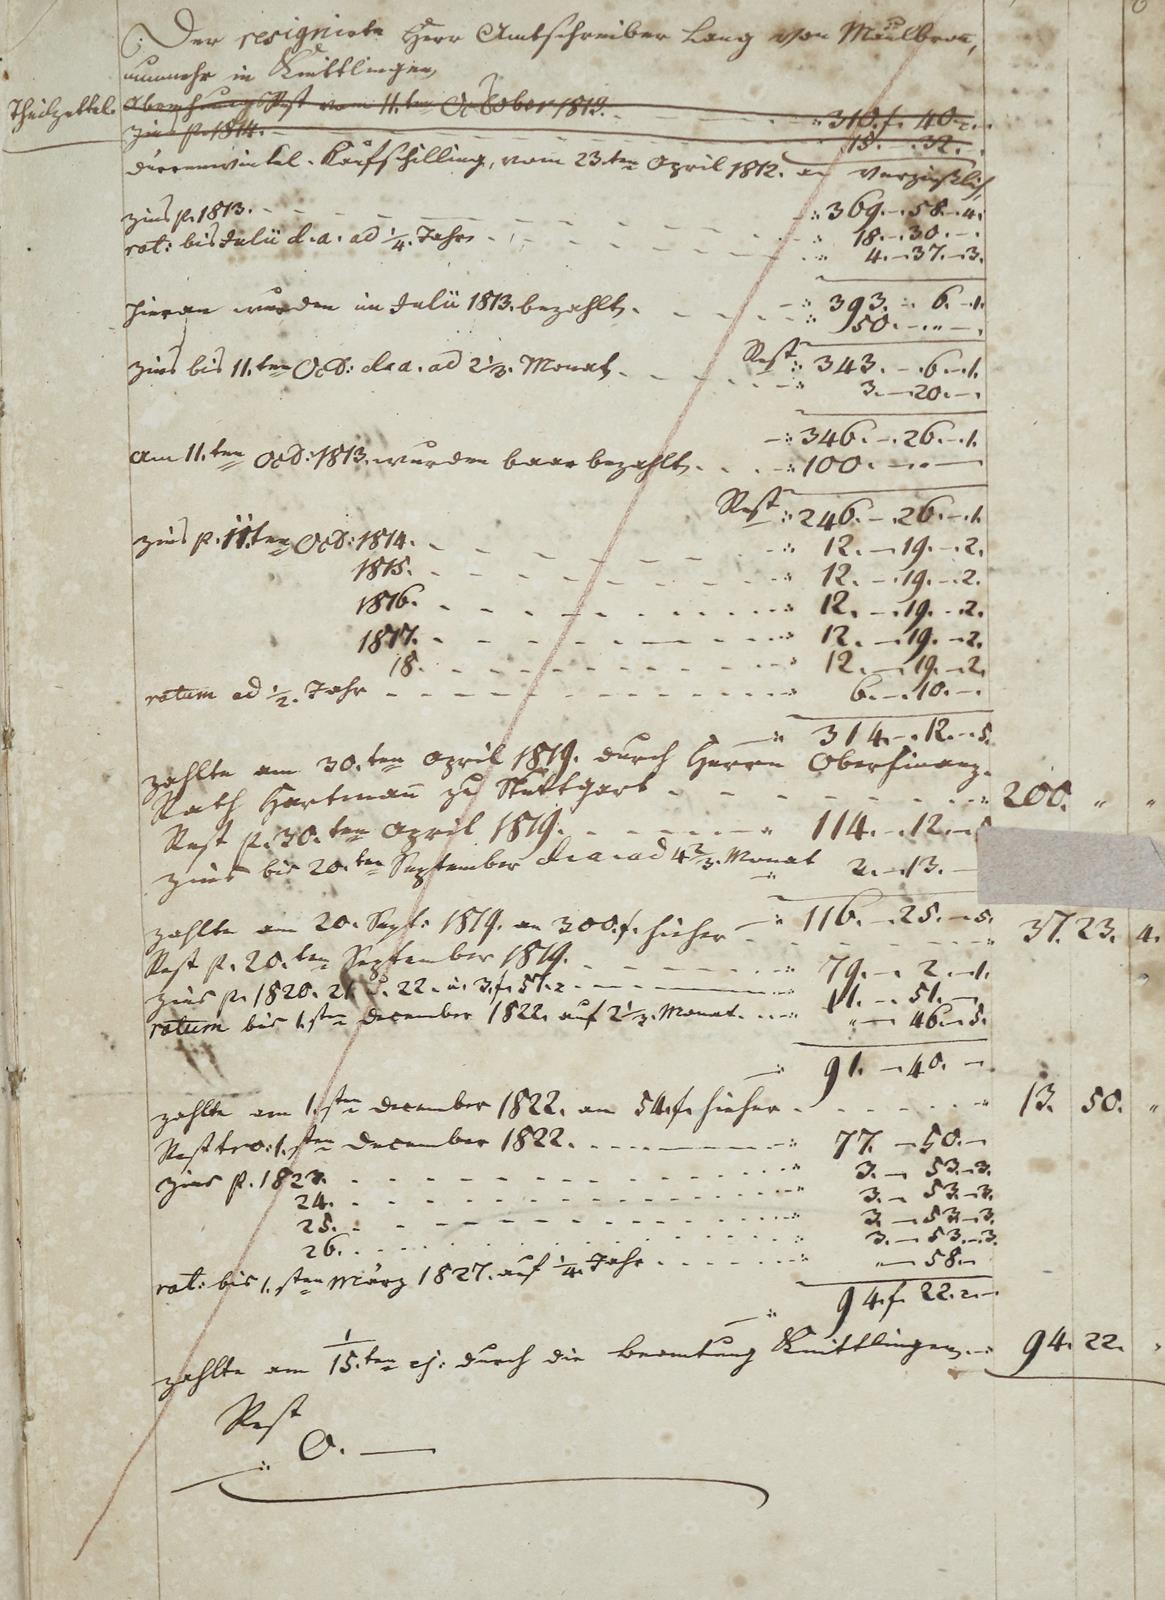 Der resignirte Herr Amtschreiber Lang von Maulbron,
nunmehr in Knittlingen
Theilzettel.
Abrechnungs Rest vom 11.ten October 1813. 310.f. 40.x.
Zins p. 1814. 15. 32.
Dürrenwinkel. Kaufschilling, vom 23.ten April 1812. an verzinslich
369. 58. 4.
Zins p. 1813. 18. 30.
rat: bis Julii d. a. ad 1/4. Jahr 4. 37. 3.
393. 6. 1.
hieran wurden im Julii 1813. bezahlt. 50. "
Rest 343. 6. 1.
Zins bis 11.ten Oct: d. a. ad 2 1/3. Monat 3. 20.
346. 26. 1.
am 11.ten Oct: 1813. wurden baar bezahlt 100. "
Rest 246. 26. 1.
Zins p. 11.ten Oct: 1814. 12. 19. 2.
1815. 12. 19. 2.
1816. 12. 19. 2.
1817. 12. 19. 2.
18. 12. 19. 2.
ratum ad 1/2. Jahr 6. 10.
314. 12. 5.
zahlte am 30.ten April 1819. durch Herrn Oberfinanz-
Rath Hartmann zu Stuttgart 200. " "
Rest p. 30.ten April 1819. 114. 12. 5
Zins bis 20.ten September d. a. ad 4 2/3. Monat 2. 13.
116. 25. 5.
zahlte am 20. Sept: 1819. an 300.f. hieher 37. 23. 4.
Rest p. 20.ten September 1819. 79. 2. 1.
Zins p. 1820. 21. u. 22. à 3.f. 57.x 11. 51.
ratum bis 1.sten December 1822. auf 2 1/3. Monat. " 46. 5.
91. 40.
zahlte am 1.sten December 1822. an 54.f. hieher 13. 50. "
Rest pro: 1.sten December 1822. 77. 50.
Zins p. 1823. 3. 53. 3.
24. 3. 53. 3.
25. 3. 53. 3.
26. 3. 53. 3.
rat: bis 1.sten März 1827. auf 1/4. Jahr " 58.
94.f. 22.x.
zahlte am 1/15.ten ej: durch die Beamtung Knittlingen 94. 22.
Rest
0.